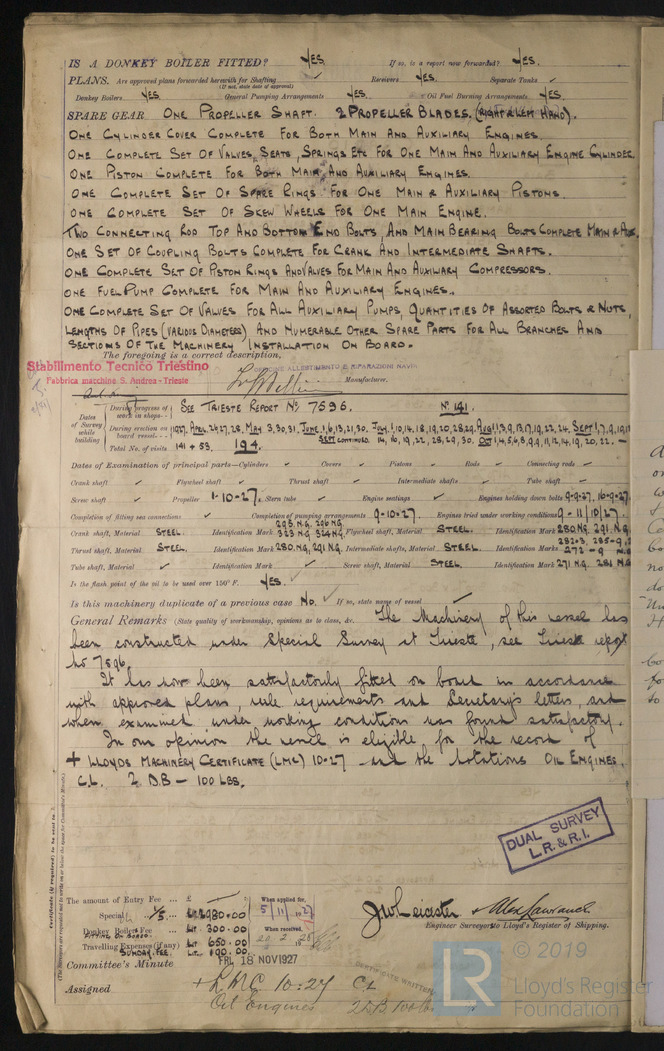 IS A DONKEY BOILER FITTED? YES. If so, is a report now forwarded? YES.
PLANS. Are approved plans forwarded herewith for Shafting ✓ Receivers YES. Separate Tanks ✓
(If not, state date of approval)
Donkey Boilers YES. General Pumping Arrangements YES. Oil Fuel Burning Arrangements YES.
SPARE GEAR ONE PROPELLER SHAFT. 2 PROPELLER BLADES. (RIGHT & LEFT HAND).
ONE CYLINDER COVER COMPLETE FOR BOTH MAIN AND AUXILIARY ENGINES.
ONE COMPLETE SET OF VALVES, SEATS, SPRINGS ETC FOR ONE MAIN AND AUXILIARY ENGINE CYLINDER.
ONE PISTON COMPLETE FOR BOTH MAIN AND AUXILIARY ENGINES.
ONE COMPLETE SET OF SPARE RINGS FOR ONE MAIN & AUXILIARY PISTONS.
ONE COMPLETE SET OF SKEW WHEELS FOR ONE MAIN ENGINE.
TWO CONNECTING ROD TOP AND BOTTOM END BOLTS, AND MAIN BEARING BOLTS COMPLETE MAIN & AUX.
ONE SET OF COUPLING BOLTS COMPLETE FOR CRANK AND INTERMEDIATE SHAFTS.
ONE COMPLETE SET OF PISTON RINGS AND VALVES FOR MAIN AND AUXILIARY COMPRESSORS.
ONE FUEL PUMP COMPLETE FOR MAIN AND AUXILIARY ENGINES.
ONE COMPLETE SET OF VALVES FOR ALL AUXILIARY PUMPS, QUANTITIES OF ASSORTED BOLTS & NUTS,
LENGTHS OF PIPES (VARIOUS DIAMETERS) AND NUMERABLE OTHER SPARE PARTS FOR ALL BRANCHES AND
SECTIONS OF THE MACHINERY INSTALLATION ON BOARD.
The foregoing is a correct description,
Stabilimento Tecnico Triestino ALLESTIMENTO E RIPARAZIONI NAVI
Fabbrica macchine S. Andrea - Trieste Manufacturer.
Dates of Survey while building
During progress of work in shops-- SEE TRIESTE REPORT No. 7596. No. 141.
During erection on board vessel--- 1927. APRIL 26,27,28. MAY 3,30,31. JUNE
SEPT CONTINUED. 14, 16, 19, 22, 28, 29, 30. OCT 1,4,5,6,8,9,11,12,14,19,20,22.
Total No. of visits 141 + 53. 194.
Dates of Examination of principal parts—Cylinders ✓ Covers ✓ Pistons ✓ Rods ✓ Connecting rods ✓
Crank shaft ✓ Flywheel shaft ✓ Thrust shaft ✓ Intermediate shafts ✓ Tube shaft ✓
Screw shaft ✓ Propeller 1-10-27. Stern tube ✓ Engine seatings ✓ Engines holding down bolts 9-9-27, 16-9-27.
Completion of fitting sea connections ✓ Completion of pumping arrangements 9-10-27. Engines tried under working conditions 9-11/10/27
Crank shaft, Material STEEL. Identification Mark 295 NG, 296 NG, 323 NG, 324 NG. Flywheel shaft, Material STEEL. Identification Mark 280 NG, 291 NG.
Thrust shaft, Material STEEL. Identification Mark 280 NG, 291 NG. Intermediate shafts, Material STEEL. Identification Marks
Tube shaft, Material ✓ Identification Mark ✓ Screw shaft, Material STEEL. Identification Mark 271 NG, 281 NG
Is the flash point of the oil to be used over 150° F. YES.
Is this machinery duplicate of a previous case No. If so, state name of vessel
General Remarks (State quality of workmanship, opinions as to class, &c. The Machinery of this vessel has
been constructed under Special Survey at Trieste, see Trieste report
No 7596.
It has now been satisfactorily fitted on board in accordance
with approved plans, rule requirements and Secretary's letters, and
when examined under working conditions was found satisfactory.
In our opinion the vessel is eligible for the record of
+ LLOYDS MACHINERY CERTIFICATE (LMC) 10-27 and the Notations OIL ENGINES.
C.L. 2 D.B — 100 LBS.
DUAL SURVEY
L.R. & R.I.
The amount of Entry Fee ... £ When applied for,
Special ... Lit 2980.00 5/11/27
Donkey Boiler Fee ... Lit 300.00 When received,
FITTING ON BOARD.
Travelling Expenses (if any) Lit 650.00
SUNDAY FEE. Lit 190.00
J W Leicester & Alex Lawrance
Engineer Surveyors to Lloyd's Register of Shipping.
Committee's Minute FRI. 18 NOV 1927
Assigned + LMC 10.27 CL
Oil Engines 2 DB 100 lb
© 2019
LR
Lloyd's Register
Foundation